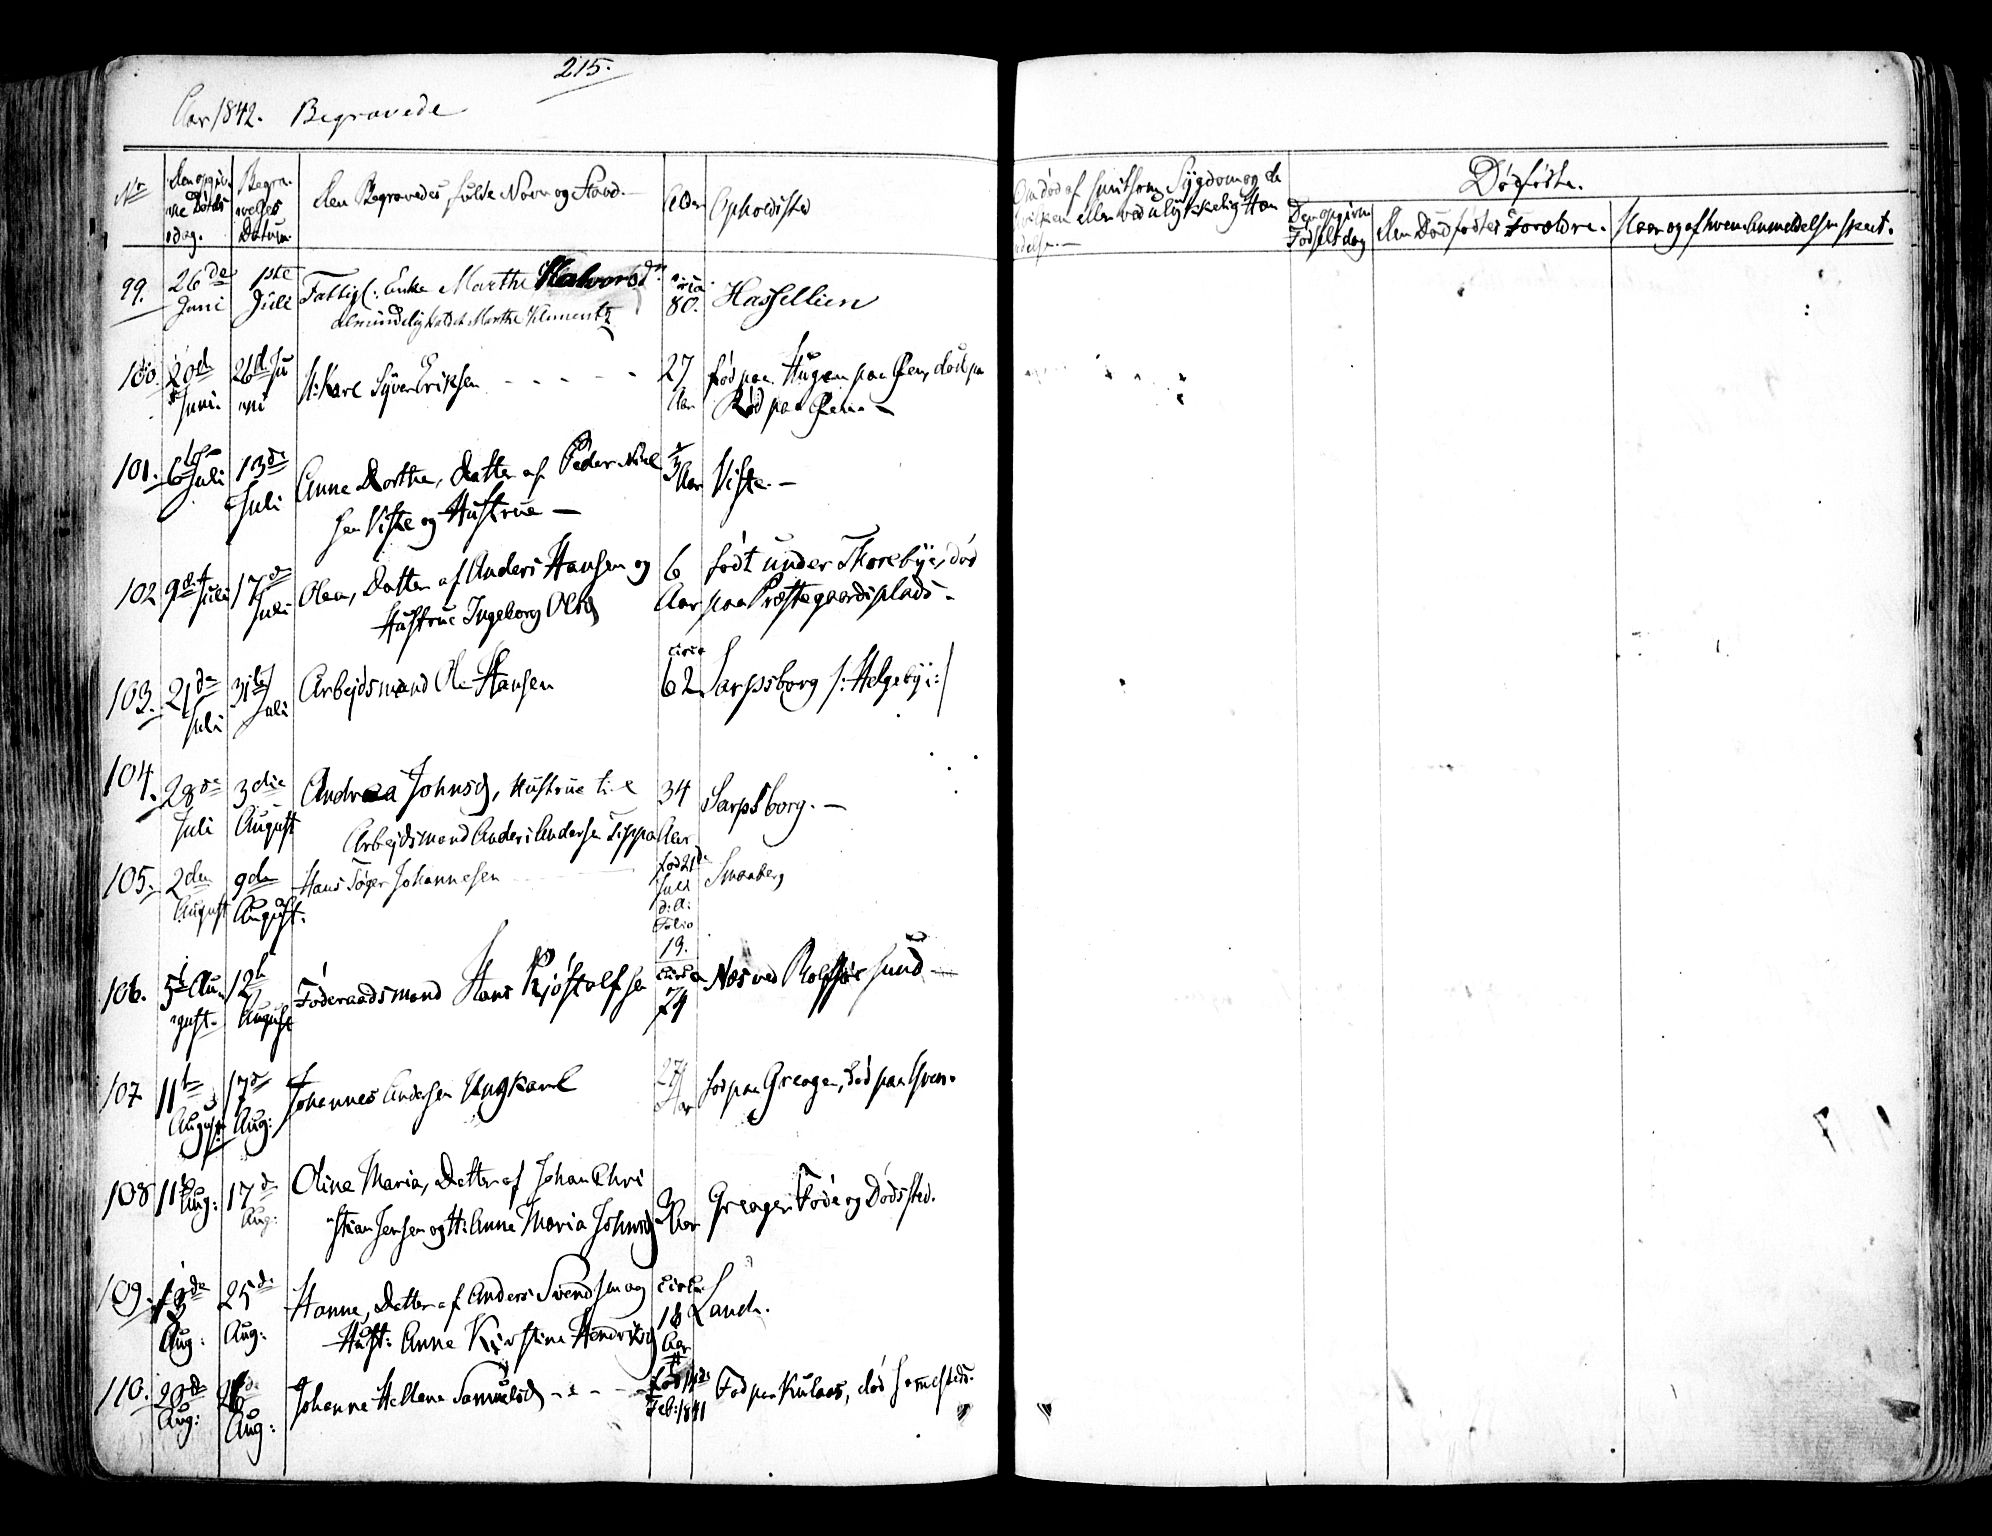 215.
Aar 1842. Begravede
Nr
Den opgivne Dødsdag.
Begravelses Datum.
Den Begravedes fulde Navn og Stand.
Alder
Opholdsted
Om død af smitsom Sygdom
eller ved ulykkelig Hændelse.
Dødfødte.
Den opgivne Fødselsdag
Den Dødfødtes Forældre.
Naar og af hvem Anmeldelse skeet.
99. 26de Juni 1ste Juli Fattigl: Enke Marthe Halvorsd. circa 80. Hassellien
almindelig kaldet Marthe Klements
100. 20de Juni. 26d. Juni U:Karl Syver Eriksen 27 Aar fød paa Hugen paa Øen, død paa
Rød paa Øen.
101. 6te Juli 13de Juli Anne Dorthe, Datter af Peder Niel 3 Aar Viste.
sen Viste og Hustrue
102 9de Juli 17de Juli Olea, Datter af Anders Hansen og 6 Aar født under Thorebye, død
Hustrue Ingeborg Olsd paa Præstegaardsplads
103. 21de Juli 31te Juli Arbejdsmand Ole Hansen circa 62 Sarpsborg /:Helgebye:/
104. 28de Juli 3die August Andrea Johnsd, Hustrue til 34 Aar Sarpsborg.
Arbejdsmand Anders Andersen Tippa
105. 2den August 9den August. Hans Tøger Johannesen fød 21de Juli d: A: Folio 19. Smaaberg
106. 5te August 12te August Føderaadsmand Hans Kjøstolfsen circa 74 Næs ved Rolfsøe Sund
107 11te August 17de Aug: Johannes Andersen Ungkarl 27 Aar fød paa Greager, død paa Hven.
108 11te Aug: 17de Aug: Oline Maria, Datter af Johan Chri Aar Greager Føde og Dødssted.
stian Jensen og H: Anne Maria Johnsd
109. 18de Aug: 25de Aug: Hanne, Datter af Anders Svendsen og circa 18 Aar Lande.
Hust: Anne Kirstine Hendriksd
110. 20de Aug: 26de Aug: Johanne Hellene Samuelsd fød 14de Feb: 1841 Fød paa Kulaas, død sammesteds.